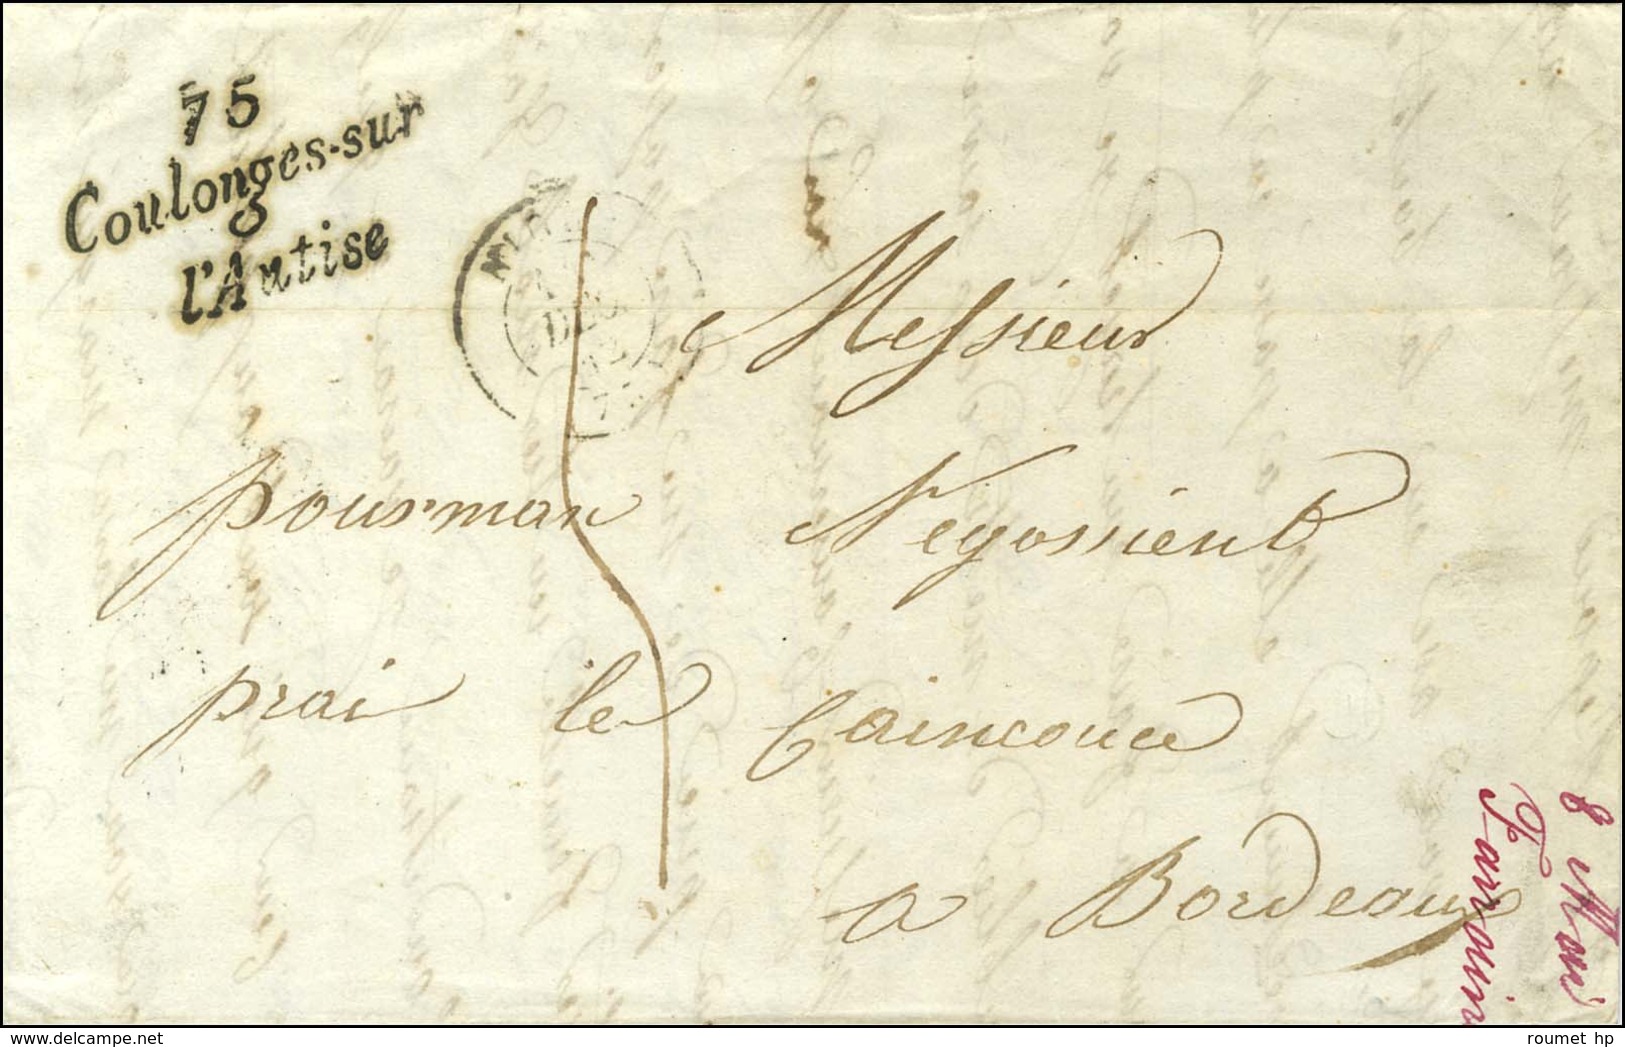 75
Coulonges-sur
l'Autise
DEC
Messieur
pourman Negossient
prai le Caincouce
a Bordeaux
roumet hp